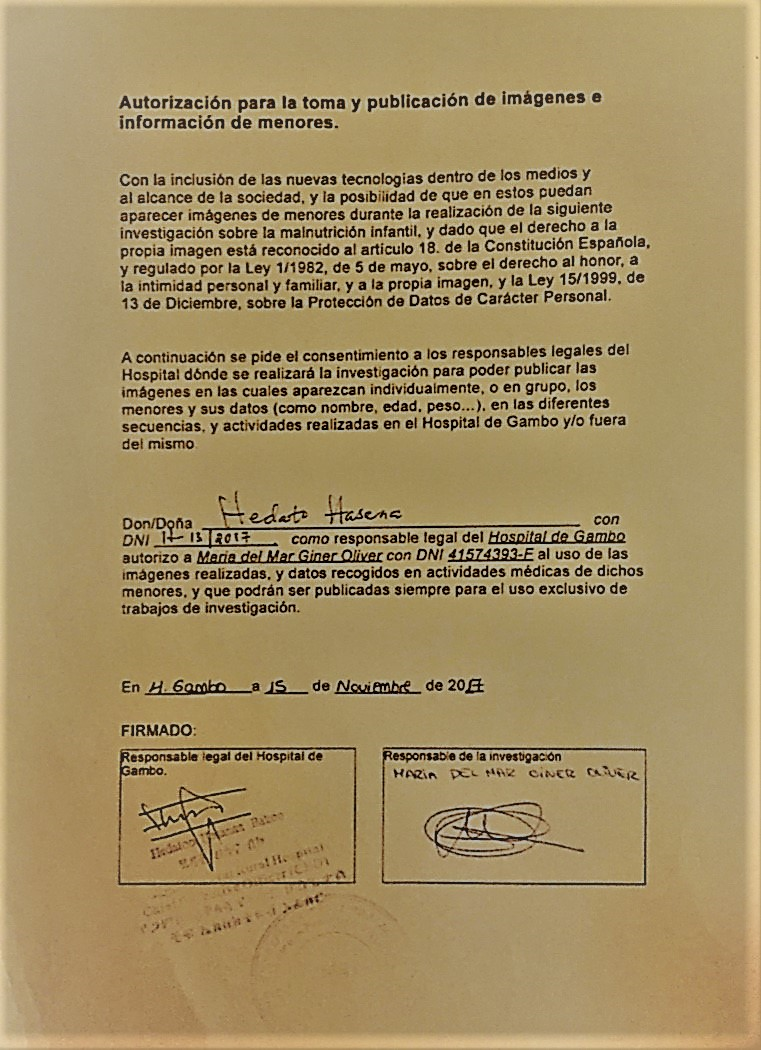 Autorización para la toma y publicación de imágenes e
información de menores.
Con la inclusión de las nuevas tecnologías dentro de los medios y
al alcance de la sociedad, y la posibilidad de que en estos puedan
aparecer imágenes de menores durante la realización de la siguiente
investigación sobre la malnutrición infantil, y dado que el derecho a la
propia imagen está reconocido al artículo 18. de la Constitución Española,
y regulado por la Ley 1/1982, de 5 de mayo, sobre el derecho al honor, a
la intimidad personal y familiar, y a la propia imagen, y la Ley 15/1999, de
13 de Diciembre, sobre la Protección de Datos de Carácter Personal.
A continuación se pide el consentimiento a los responsables legales del
Hospital dónde se realizará la investigación para poder publicar las
imágenes en las cuales aparezcan individualmente, o en grupo, los
menores y sus datos (como nombre, edad, peso...), en las diferentes
secuencias, y actividades realizadas en el Hospital de Gambo y/o fuera
del mismo
Don/Doña Hedato Hasena con
DNI 13/2017, como responsable legal del Hospital de Gambo
autorizo a Maria del Mar Giner Oliver con DNI 41574393-F al uso de las
imágenes realizadas, y datos recogidos en actividades médicas de dichos
menores, y que podrán ser publicadas siempre para el uso exclusivo de
trabajos de investigación.
En H. Gambo a 15 de Noviembre de 2017
FIRMADO:
Responsable legal del Hospital de
Gambo.
Responsable de la investigación
MARIA DEL MAR GINER OLIVER
Hospital